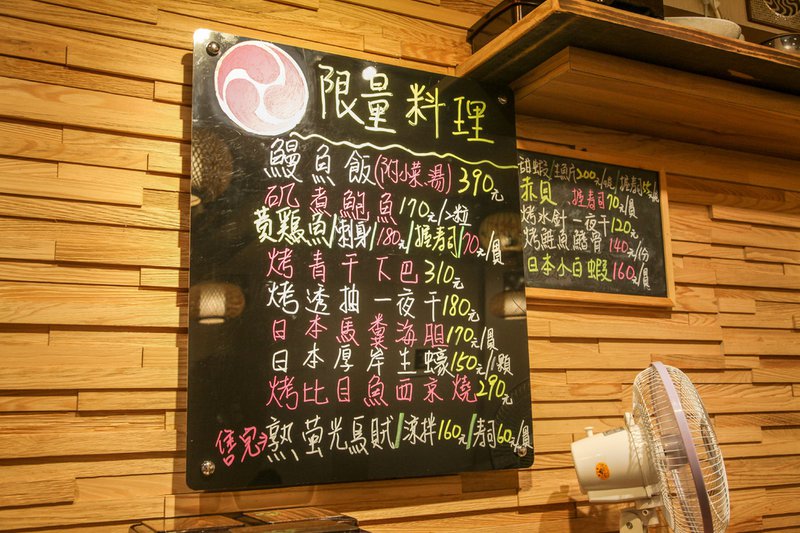 限量料理
鰻魚飯(附小菜湯)390元
磯煮鮑魚170元/2粒
黄鶏魚/刺身/180元/握寿司/70元/貫
烤青干下巴310元
烤透抽一夜干180元
日本馬糞海胆170元/貫
日本厚岸生蠔150元/1顆
烤比目魚西京燒290元
售完 熟螢光烏賊/涼拌160元/寿司60元/貫
甜蝦/生魚片300元/握寿司
赤貝 握寿司70元/貫
烤水針一夜干120元
烤鮭魚鰭骨140元/1份
日本小白蝦160元/貫